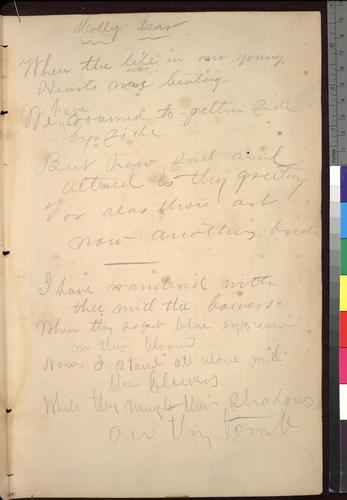 Molly Dear
When the life in our young
Hearts was beating
have
We roamed to-gether side
by side
But how sad and
altered is thy greeting
For alas thou art
now another's bride
I have wandered with
thee mid the bowers
When thy blue eyes were
in their bloom
Now I stand all alone mid
the flowers
While they mingle their shadows
oer thy tomb